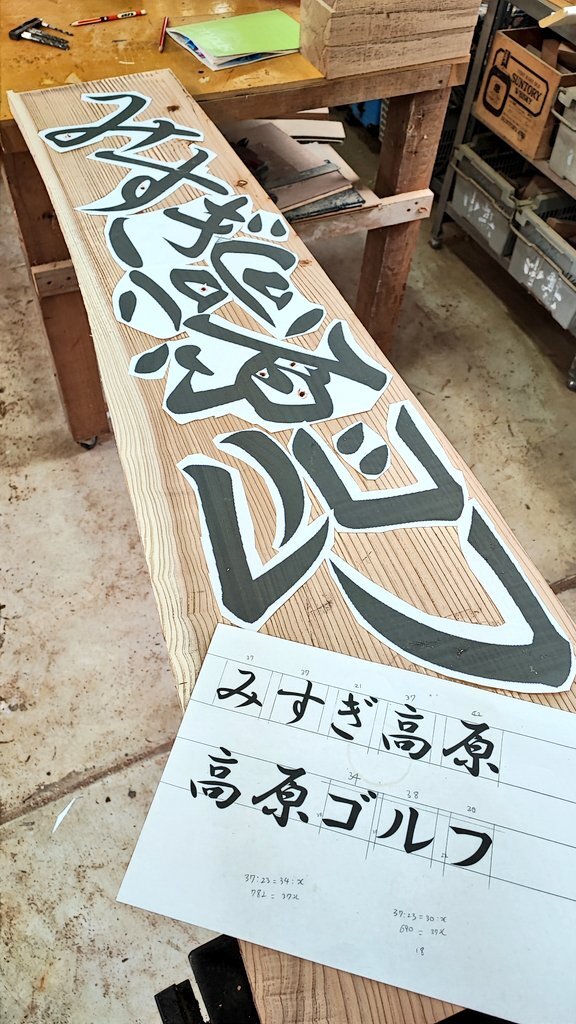 みすぎ高原ゴルフ
みすぎ高原
34 38
高原ゴルフ
37:23=34:x
782 = 37x
37:23=30:x
690 = 37x
18
SUNTORY
WHISKY